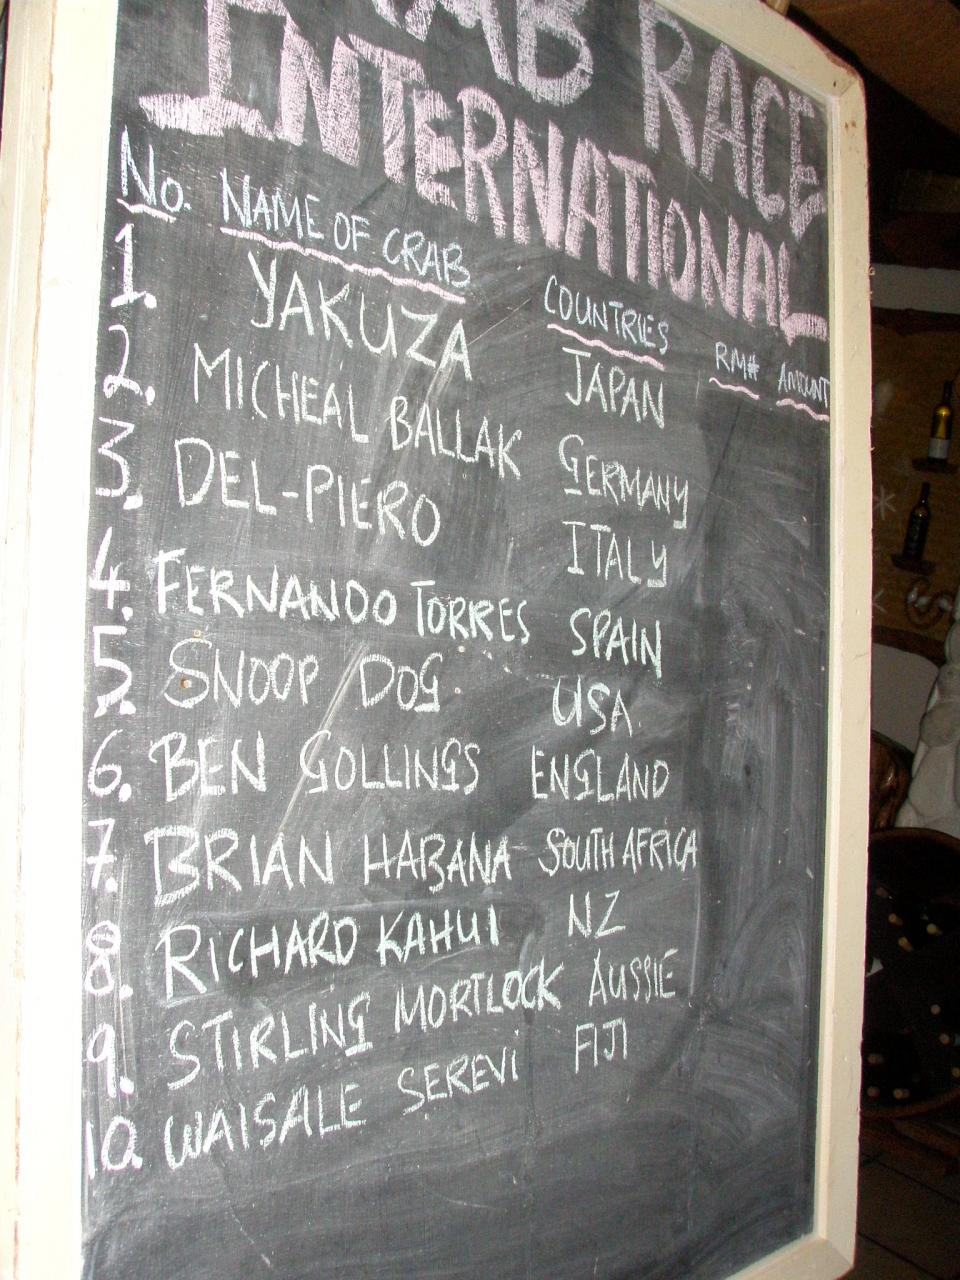 AB RACE
INTERNATIONAL
No. NAME OF CRAB COUNTRIES RM# AMOUNT
1. YAKUZA JAPAN
2. MICHEAL BALLAK GERMANY
3. DEL-PIERO ITALY
4. FERNANDO TORRES SPAIN
5. SNOOP DOG USA
6. BEN GOLLINGS ENGLAND
7. BRIAN HABANA SOUTH AFRICA
8. RICHARD KAHUI NZ
9. STIRLING MORTLOCK AUSSIE
10. WAISALE SEREVI FIJI